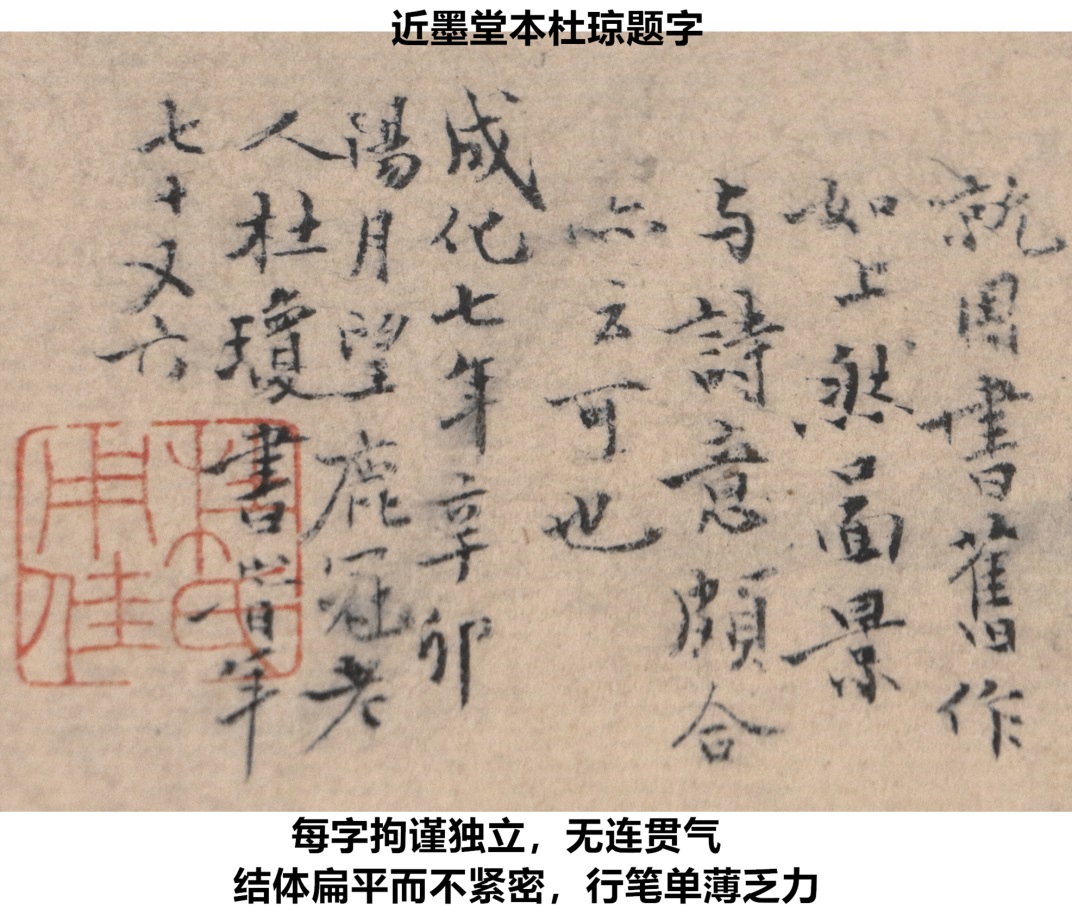 近墨堂本杜琼题字
就图书舊作
如上然圖景
与詩意頗合
亦云可也
成化七年辛卯
陽月望鹿冠老
人杜瓊書當年
七十又六
每字拘谨独立，无连贯气
结体扁平而不紧密，行笔单薄乏力